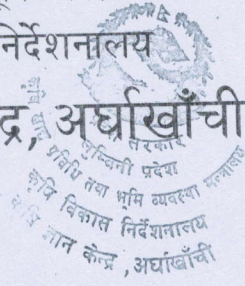 निर्देशनालय
द्र, अर्घाखाँची
सरकार
लुम्बिनी प्रदेश
कृषि तथा भूमि व्यवस्था मन्त्रालय
कृषि विकास निर्देशनालय
ज्ञान केन्द्र, अर्घाखाँची